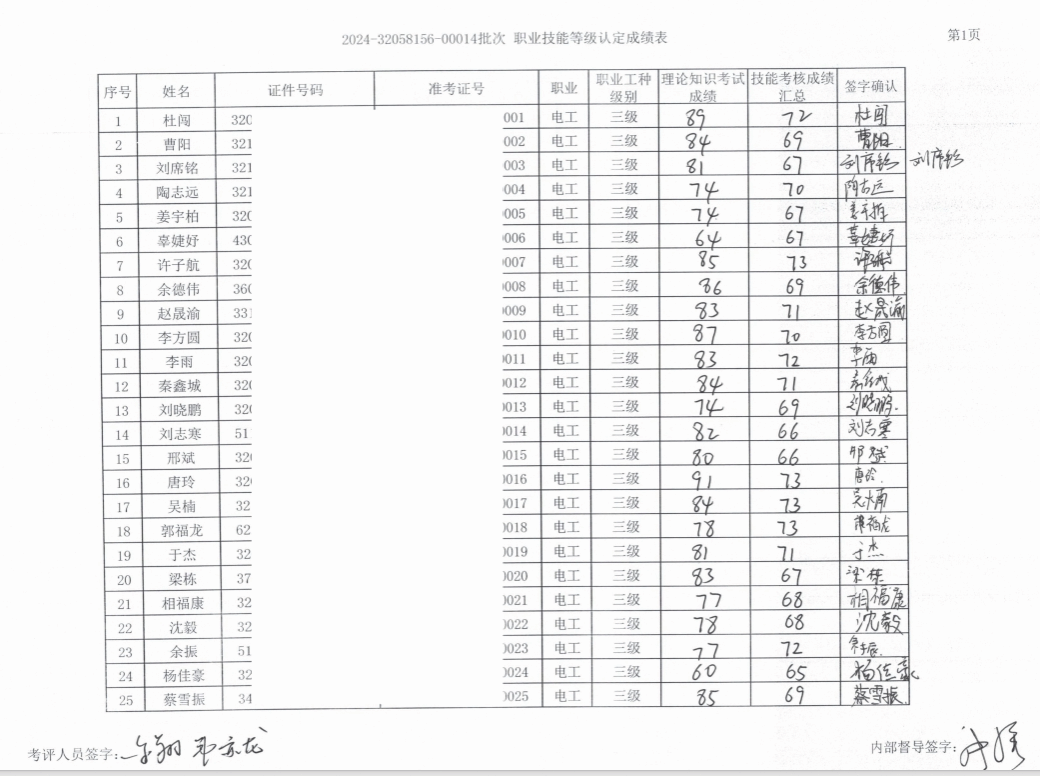 2024-32058156-00014批次 职业技能等级认定成绩表 第1页
序号 姓名 证件号码 准考证号 职业 职业工种级别 理论知识考试成绩 技能考核成绩汇总 签字确认
1 杜闯 320 001 电工 三级 89 72 杜闯
2 曹阳 321 002 电工 三级 84 69 曹阳
3 刘席铭 321 003 电工 三级 81 67 刘席铭 刘席铭
4 陶志远 321 004 电工 三级 74 70 陶志远
5 姜宇柏 320 005 电工 三级 74 67 姜宇柏
6 辜婕妤 430 0006 电工 三级 64 67 辜婕妤
7 许子航 320 0007 电工 三级 85 73 许子航
8 余德伟 360 0008 电工 三级 86 69 余德伟
9 赵晟渝 331 0009 电工 三级 83 71 赵晟渝
10 李方圆 320 0010 电工 三级 87 70 李方圆
11 李雨 320 0011 电工 三级 83 72 李雨
12 秦鑫城 320 0012 电工 三级 84 71 秦鑫城
13 刘晓鹏 320 0013 电工 三级 74 69 刘晓鹏
14 刘志寒 51 0014 电工 三级 82 66 刘志寒
15 邢斌 320 0015 电工 三级 80 66 邢斌
16 唐玲 320 0016 电工 三级 91 73 唐玲
17 吴楠 32 0017 电工 三级 84 73 吴楠
18 郭福龙 62 0018 电工 三级 78 73 郭福龙
19 于杰 32 0019 电工 三级 81 71 于杰
20 梁栋 37 0020 电工 三级 83 67 梁栋
21 相福康 32 0021 电工 三级 77 68 相福康
22 沈毅 32 0022 电工 三级 78 68 沈毅
23 余振 51 0023 电工 三级 77 72 余振
24 杨佳豪 32 0024 电工 三级 60 65 杨佳豪
25 蔡雪振 34 0025 电工 三级 85 69 蔡雪振
考评人员签字: 内部督导签字: